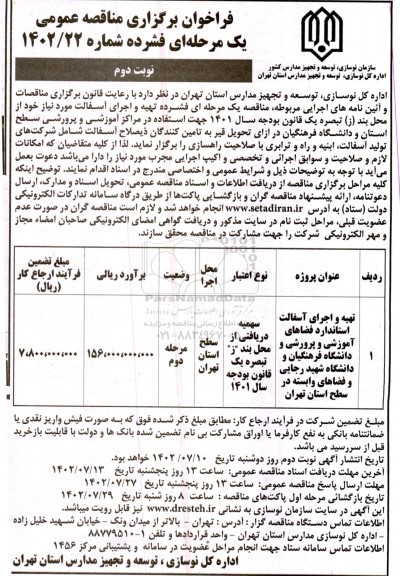 فراخوان برگزاری مناقصه عمومی
یک مرحله‌ای فشرده شماره ۱۴۰۲/۲۲
نوبت دوم
سازمان نوسازی، توسعه و تجهیز مدارس کشور
اداره کل نوسازی، توسعه و تجهیز مدارس استان تهران
اداره کل نوسـازی، توسـعه و تجهیز مدارس استان تهران در نظر دارد با رعایت قانون برگزاری مناقصات
و آئین نامه های اجرایی مربوطه، مناقصه یک مرحله ای فشـرده تهیه و اجرای آسـفالت مورد نیاز خود از
محل بند (ز) تبصره یک قانون بودجه سـال ۱۴۰۱ جهت اسـتفاده در مراکز آموزشـی و پرورشـی سـطح
استان و دانشگاه فرهنگیان در ازای تحویل قیر به تامین کنندگان ذیصلاح آسفالت شامل شرکت‌های
تولید آسـفالت، ابنیه و راه و ترابری با صلاحیت راهسازی را برگزار نماید. لذا از کلیه متقاضیان که امکانات
لازم و صلاحیت و سوابق اجرائی و تخصصی و اکیپ اجرایی مجرب مورد نیاز را دارا می‌باشد دعوت بعمل
می‌آید با توجه به توضیحات ذیل و شرایط عمومی و اختصاصی مندرج در اسناد اقدام نمایند. توضیح اینکه
کلیه مراحل برگزاری مناقصه از دریافت اطلاعات و اسناد مناقصه عمومی، تحویل اسـناد و مدارک، ارسال
دعوتنامه، ارائه پیشـنهاد مناقصه گران و بازگشـایی پاکت‌ها از طریق درگاه سـامانه تدارکات الکترونیکی
دولت (ستاد) به آدرس www.setadiran.ir انجام خواهد شد و لازم است مناقصه گران در صورت عدم
عضویت قبلی، مراحل ثبت نام در سایت مذکور و دریافت گواهی امضای الکترونیکی صاحبان امضاء مجاز
و مهر الکترونیکی شرکت را جهت مشارکت در مناقصه محقق سازند.
ردیف عنوان پروژه نوع اعتبار محل اجرا وضعیت برآورد ریالی مبلغ تضمین فرآیند ارجاع کار (ریال)
۱ تهیه و اجرای آسفالت استاندارد فضاهای آموزشی و پرورشی و دانشگاه فرهنگیان و دانشگاه شهید رجایی و فضاهای وابسته در سطح استان تهران سهمیه دریافتی از محل بند "ز" تبصره یک قانون بودجه سال ۱۴۰۱ سطح استان تهران مرحله دوم ۱۵۶,۰۰۰,۰۰۰,۰۰۰ ۷,۸۰۰,۰۰۰,۰۰۰
ParsNamadData
۰۲۱-۸۸۳۴۹۶۷۰
مبلـغ تضمین شـرکت در فرآیند ارجاع کار: مطابق مبلغ ذکر شـده فوق که بـه صورت فیش واریز نقدی یا
ضمانتنامه بانکی به نفع کارفرما یا اوراق مشارکت بی نام تضمین شده بانک ها و دولت با قابلیت بازخرید
قبل از سررسید می باشد.
تاریخ انتشار آگهی نوبت دوم روز دوشنبه تاریخ ۱۴۰۲/۰۷/۱۰ خواهد بود.
آخرین مهلت دریافت اسناد مناقصه عمومی: ساعت ۱۳ روز پنجشنبه تاریخ ۱۴۰۲/۰۷/۱۳
مهلت ارسال پاسخ مناقصه عمومی: ساعت ۱۳ روز پنجشنبه تاریخ ۱۴۰۲/۰۷/۲۷
تاریخ بازگشائی مرحله اول پاکت‌های مناقصه : ساعت ۸ روز شنبه تاریخ ۱۴۰۲/۰۷/۲۹
این آگهی در سایت سازمان نوسازی به نشانی www.dresteh.ir نیز قابل رویت میباشد.
اطلاعات تماس دستگاه مناقصه گزار : آدرس : تهران - بالاتر از میدان ونک - خیابان شهید خلیل زاده
- اداره کل نوسازی مدارس استان تهران - واحد قراردادها و تلفن ۱-۸۸۷۷۹۵۱۰
اطلاعات تماس سامانه ستاد جهت انجام مراحل عضویت در سامانه و پشتیبانی مرکز ۱۴۵۶
اداره کل نوسازی ، توسعه و تجهیز مدارس استان تهران